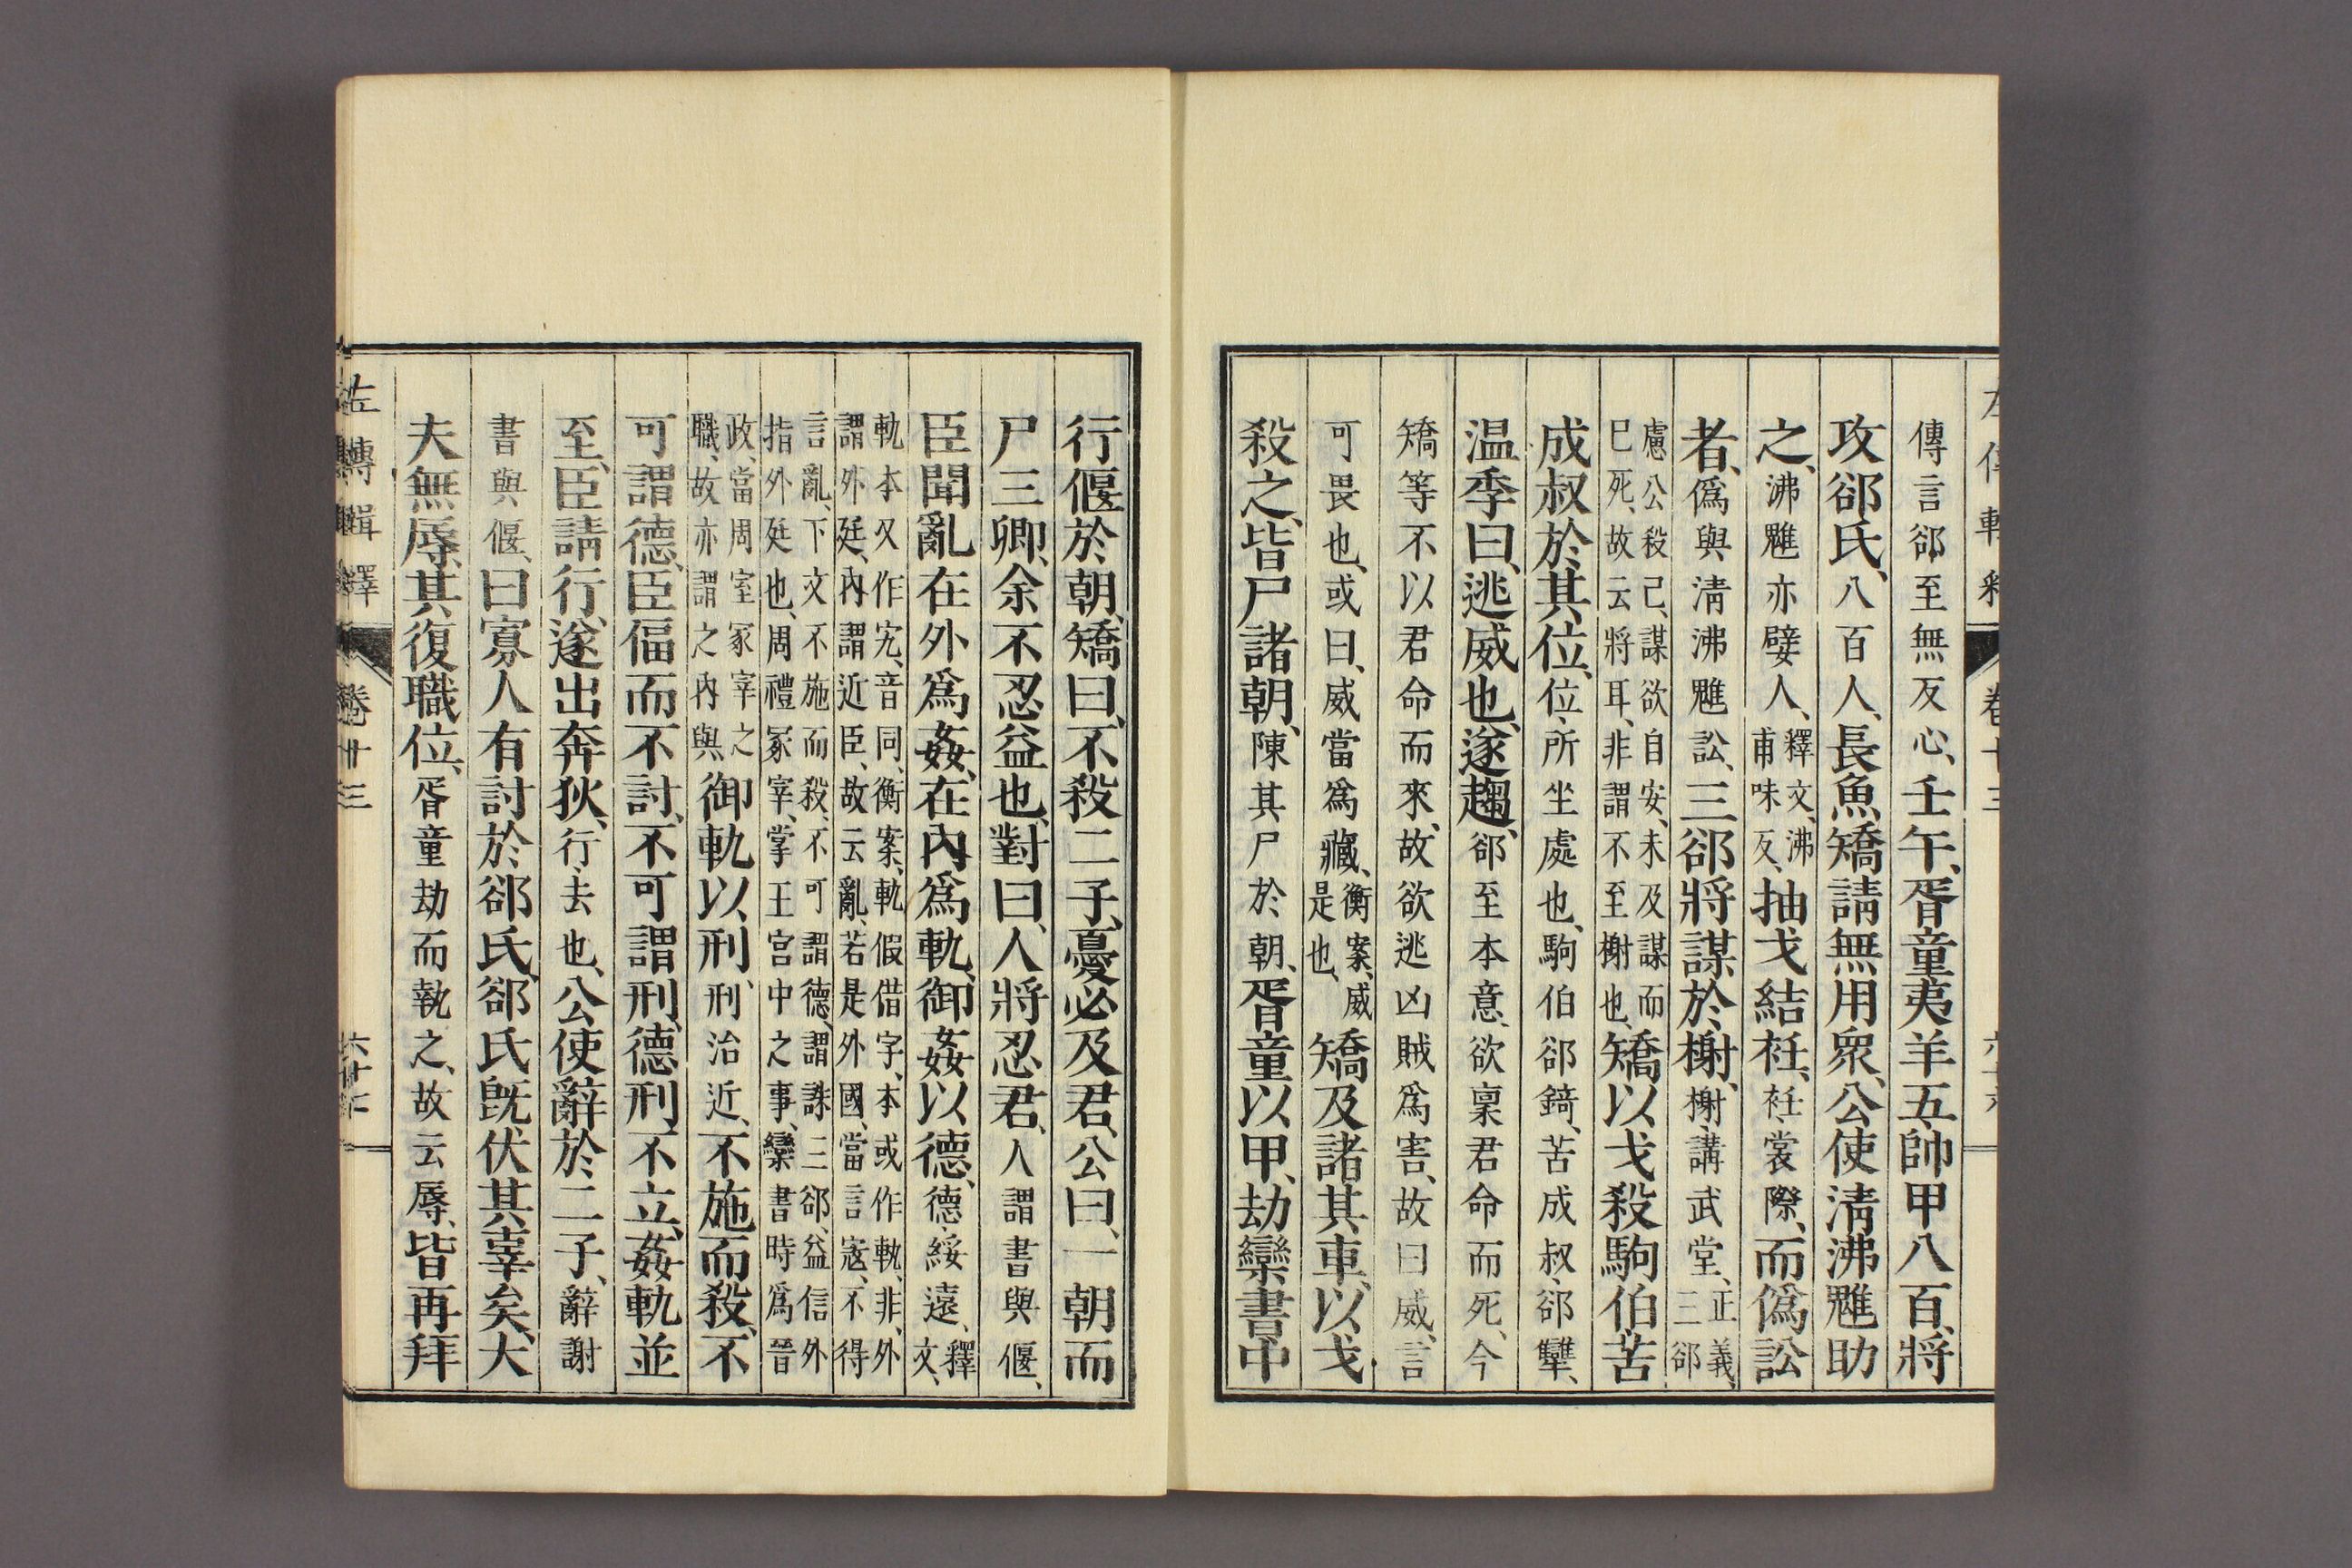 傳言郤至無反心、壬午、胥童夷羊五、帥甲八百、將
攻郤氏、八百人、長魚矯請無用衆、公使淸沸魋助
之、沸魋亦嬖人、釋文、沸甫味反、抽戈結衽、衽、裳際、而僞訟
者、僞與淸沸魋訟、三郤將謀於榭、榭、講武堂、正義、三郤
慮公殺己、謀欲自安、未及謀而
已死、故云將耳、非謂不至榭也、矯以戈殺駒伯苦
成叔於其位、位、所坐處也、駒伯郤錡、苦成叔、郤犨、
温季曰、逃威也、遂趨、郤至本意、欲稟君命而死、今
矯等不以君命而來、故欲逃凶賊爲害、故曰威、言
可畏也、或曰、威當爲藏、衡案、威是也、矯及諸其車、以戈
殺之、皆尸諸朝、陳其尸於朝、胥童以甲、劫欒書中
行偃於朝、矯曰、不殺二子、憂必及君、公曰、一朝而
尸三卿、余不忍益也、對曰、人將忍君、人謂書與偃、
臣聞亂在外爲姦、在內爲軌、御姦以德、德、綏遠、釋文、
軌本又作宄、音同、衡案、軌假借字、本或作軌、非、外
謂外廷、內謂近臣、故云亂、若是外國、當言寇、不得
言亂、下文不施而殺、不可謂德、謂誅三郤、益信外
指外廷也、周禮冢宰、掌王宮中之事、欒書時爲晉
政、當周室冢宰之
職、故亦謂之內與 御軌以刑、刑治近、不施而殺、不
可謂德、臣偪而不討、不可謂刑、德刑不立、姦軌並
至、臣請行、遂出奔狄、行、去也、公使辭於二子、辭謝
書與偃、曰寡人有討於郤氏、郤氏旣伏其辜矣、大
夫無辱、其復職位、胥童劫而執之、故云辱、皆再拜
左傳輯釋 卷十三